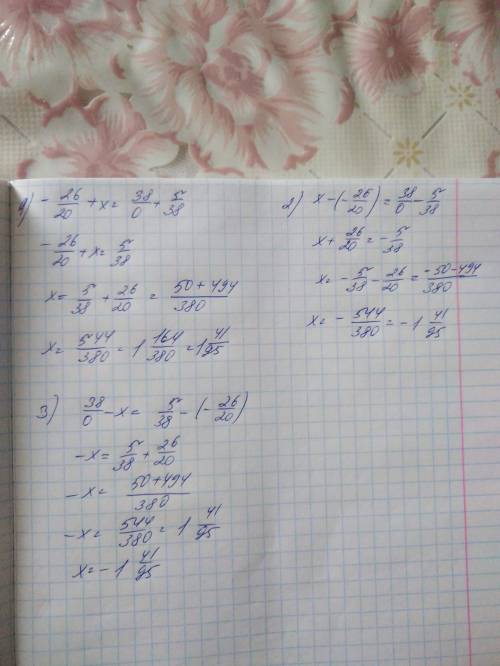 1) -26/20 + x = 38/0 + 5/38
-26/20 + x = 5/38
x = 5/38 + 26/20 = 50+494/380
x = 544/380 = 1 164/380 = 1 41/95
2) x - (-26/20) = 38/0 - 5/38
x + 26/20 = -5/38
x = -5/38 - 26/20 = -50-494/380
x = -544/380 = -1 41/95
3) 38/0 - x = 5/38 - (-26/20)
-x = 5/38 + 26/20
-x = 50+494/380
-x = 544/380 = 1 41/95
x = -1 41/95